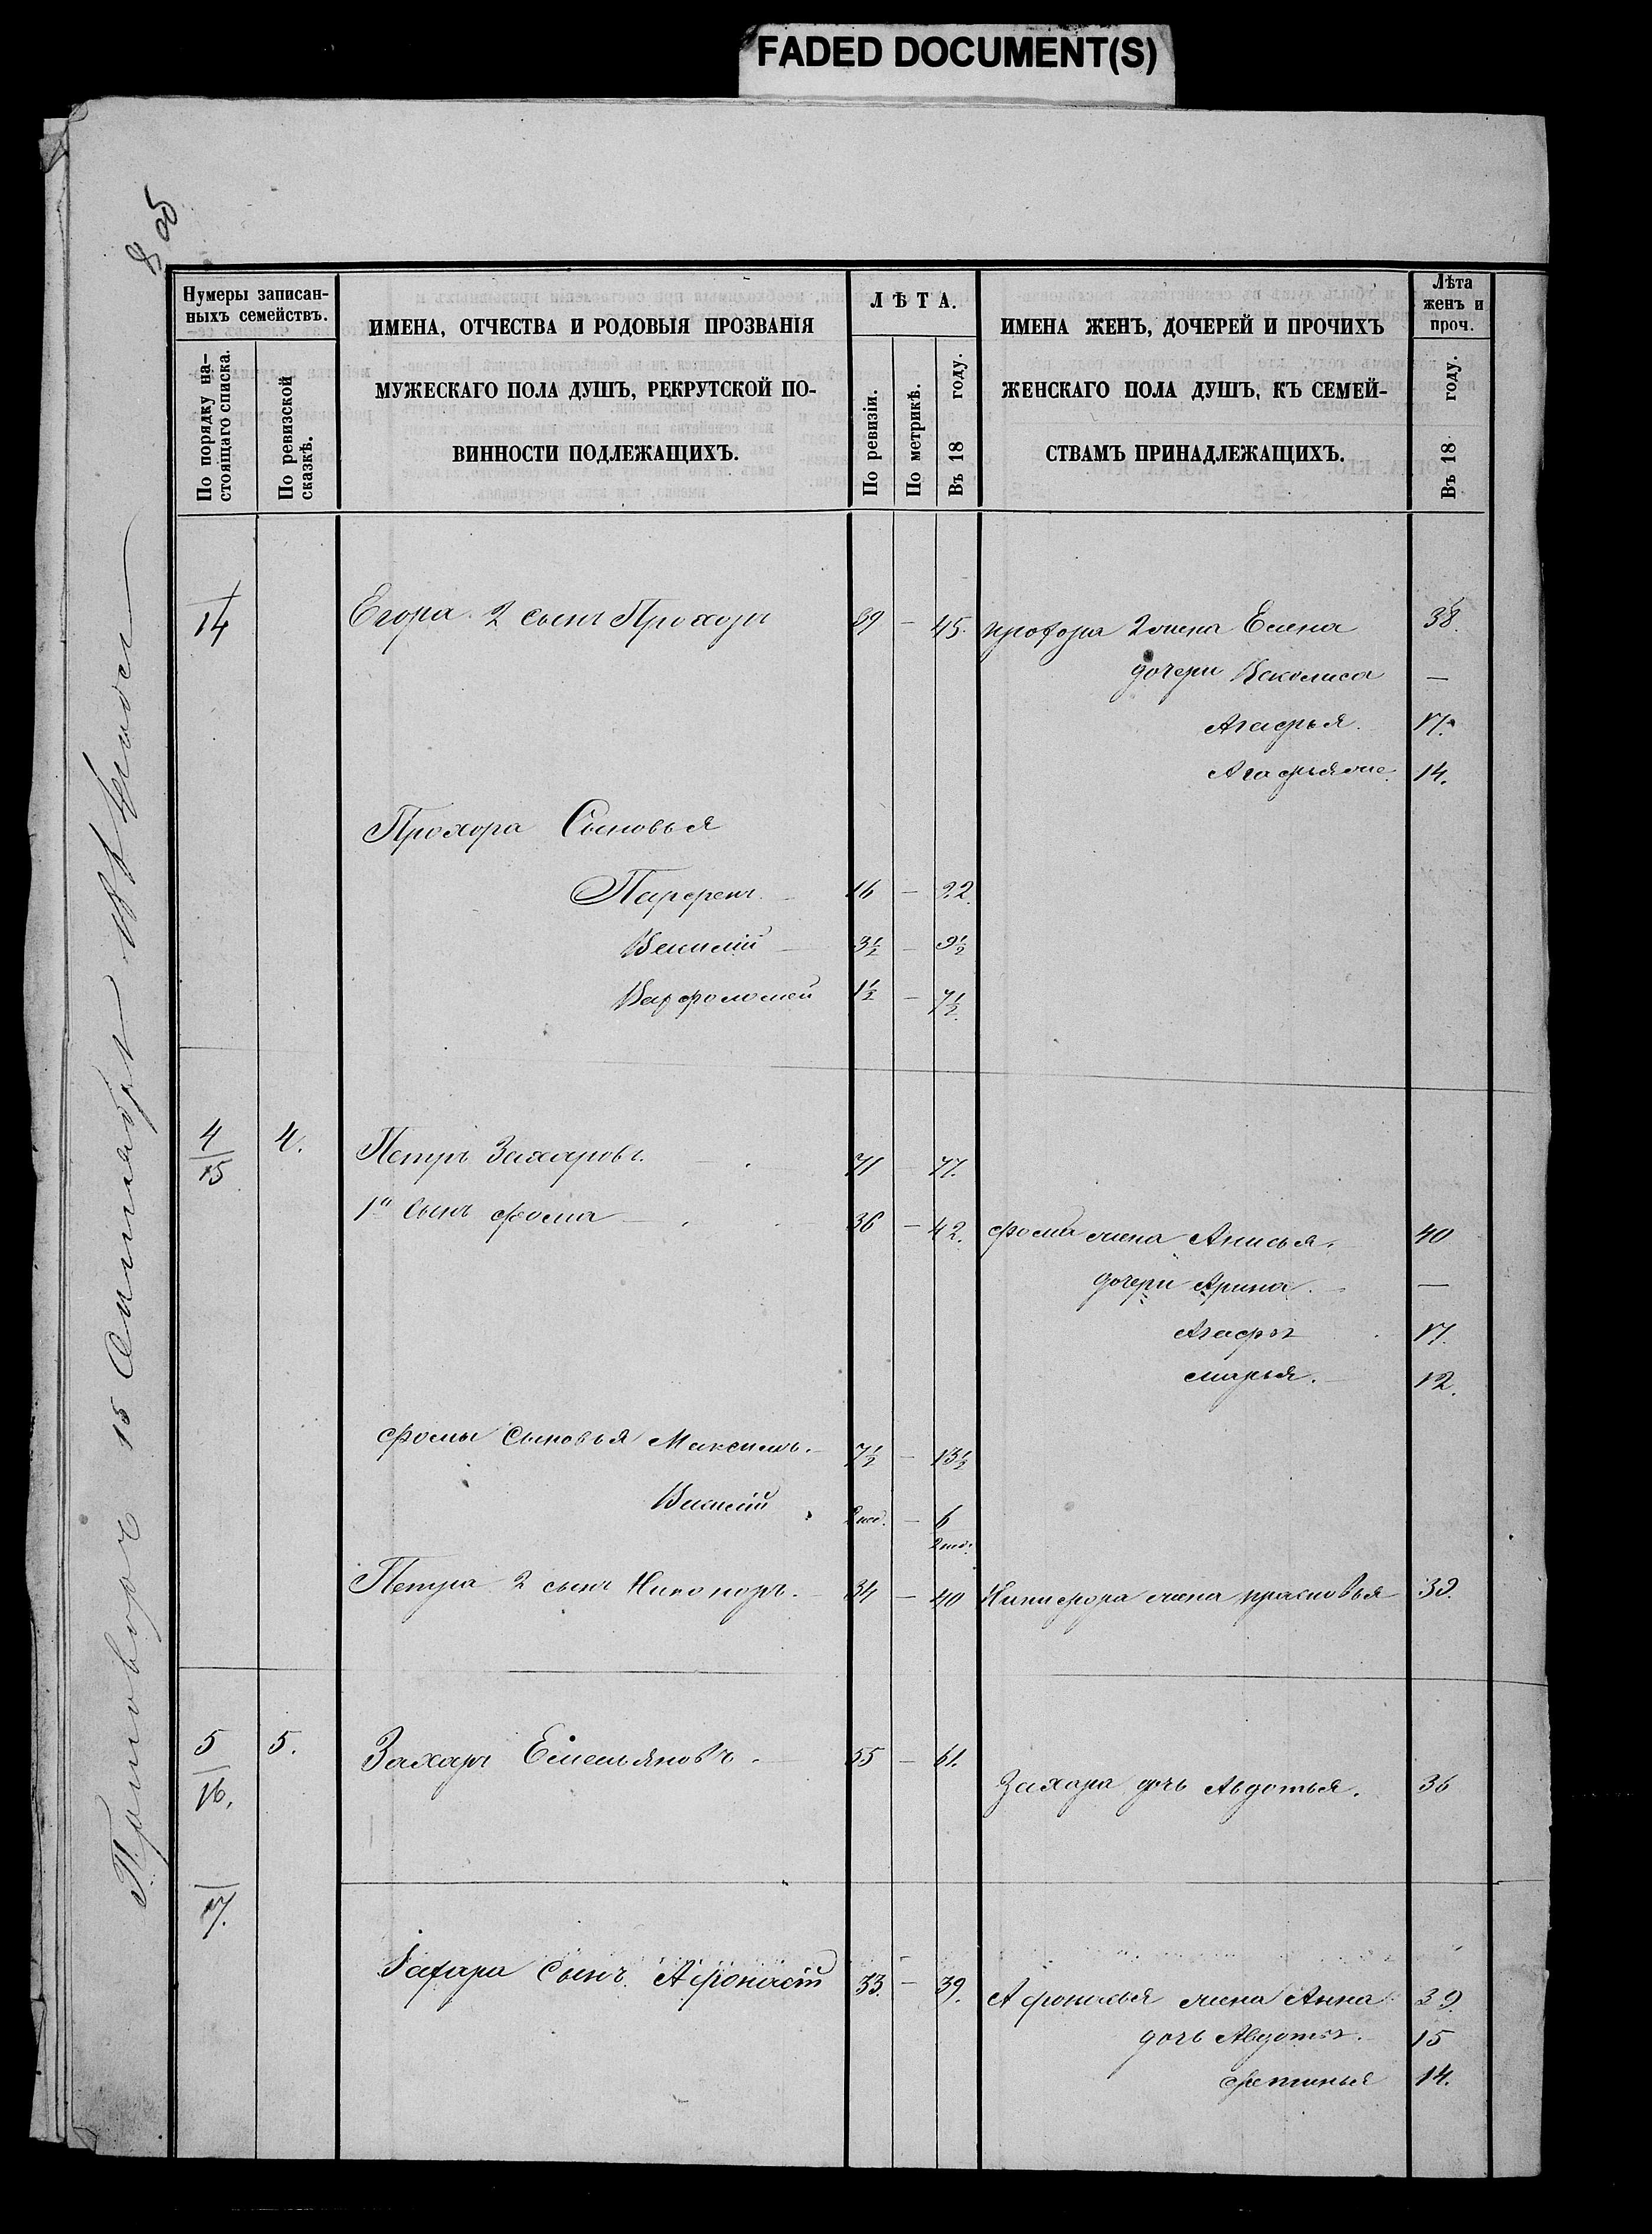 FADED DOCUMENT(S)
8 об
Нумеры записан-
ныхъ семействъ.
По порядку на-
стоящаго списка.
По ревизской
сказкѣ.
ИМЕНА, ОТЧЕСТВА И РОДОВЫЯ ПРОЗВАНІЯ
МУЖЕСКАГО ПОЛА ДУШЪ, РЕКРУТСКОЙ ПО-
ВИННОСТИ ПОДЛЕЖАЩИХЪ.
ЛѢТА.
По ревизіи.
По метрикѣ.
Въ 18 году.
ИМЕНА ЖЕНЪ, ДОЧЕРЕЙ И ПРОЧИХЪ
ЖЕНСКАГО ПОЛА ДУШЪ, КЪ СЕМЕЙ-
СТВАМЪ ПРИНАДЛЕЖАЩИХЪ.
Лѣта
женъ и
проч.
Въ 18 году.
14 Егора 2 сынъ Прохоръ 39 — 45. прохора 2 жена Елена 38.
дочери Васелиса —
Агафья. 17.
Агафья же. 14.
Прохора Сыновья
Парфенъ. 16 — 22.
Василій 3½ — 9½
Варфоломей 1½ — 7½
4/15 4. Петръ Захаровъ. 71 77.
1й Сынъ фома 36 — 42. фомы жена Анисья. 40
дочери Арина. —
Агафья 17.
марья. 12.
фомы Сыновья Максимъ. 7½ — 13½
Василій 2 нед. — 6
2 нед.
Петра 2 сынъ Никифоръ. 34 — 40 Никифора жена прасковья 39.
5/16. 5. Захаръ Емельяновъ. 55 — 61.
Захара дчь Авдотья. 36
17.
Захара Сынъ Афонасій 33. — 39. Афонасья жена Анна 39.
дочь Авдотья. 15
фетинья 14.
15